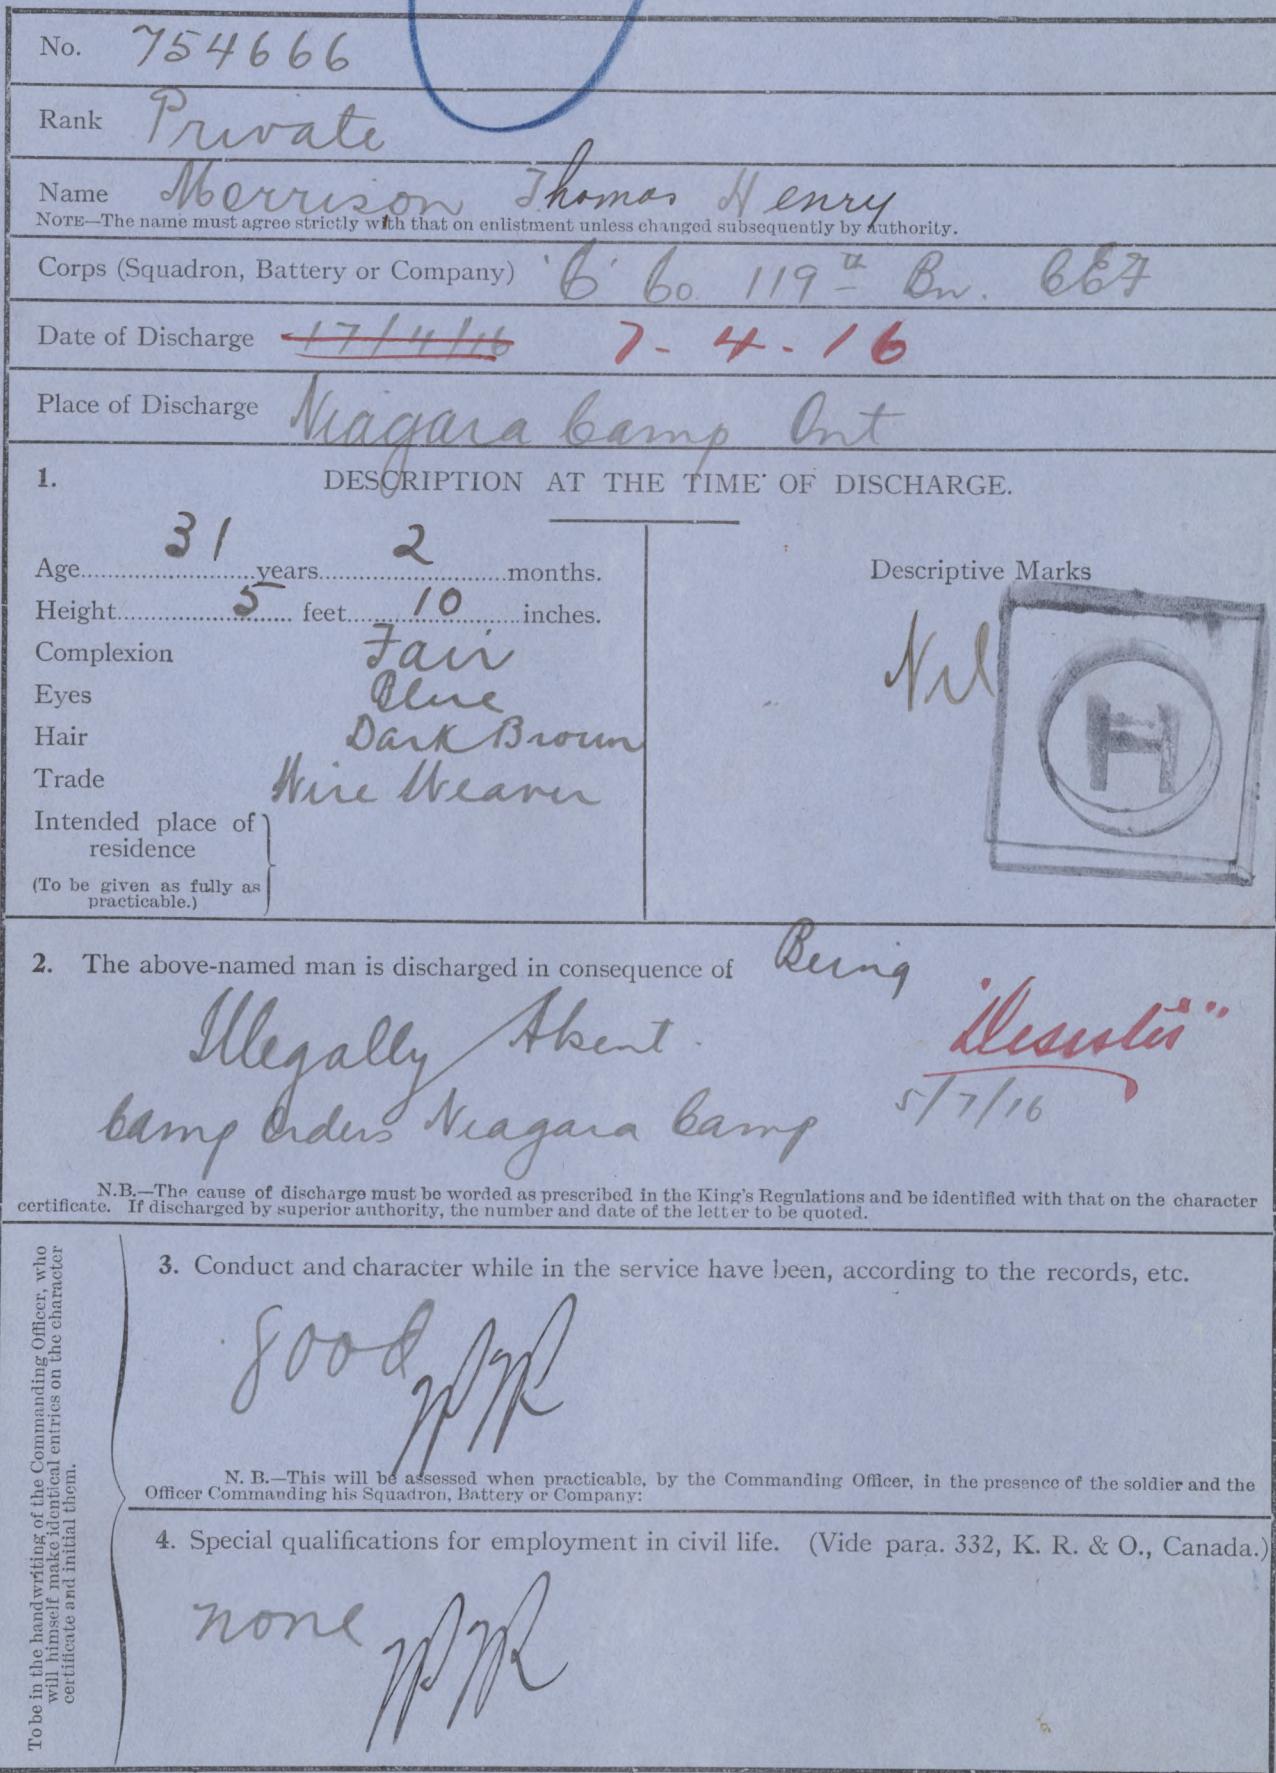 No. 754666
Rank Private
Name Morrison Thomas Henry
NOTE—The name must agree strictly with that on enlistment unless changed subsequently by authority.
Corps (Squadron, Battery or Company) 'C' Co. 119th Bn. CEF
Date of Discharge 17/4/16 7-4-16
Place of Discharge Niagara Camp Ont
1. DESCRIPTION AT THE TIME OF DISCHARGE.
Age 31 years 2 months.
Height 5 feet 10 inches.
Complexion Fair
Eyes Blue
Hair Dark Brown
Trade Wire Weaver
Intended place of
residence
(To be given as fully as
practicable.)
Descriptive Marks
Nil
H
2. The above-named man is discharged in consequence of Being
Illegally Absent.
"Deserter"
Camp Orders Niagara Camp 5/7/16
N.B.—The cause of discharge must be worded as prescribed in the King's Regulations and be identified with that on the character
certificate. If discharged by superior authority, the number and date of the letter to be quoted.
To be in the handwriting of the Commanding Officer, who
will himself make identical entries on the character
certificate and initial them.
3. Conduct and character while in the service have been, according to the records, etc.
good
N. B.—This will be assessed when practicable, by the Commanding Officer, in the presence of the soldier and the
Officer Commanding his Squadron, Battery or Company:
4. Special qualifications for employment in civil life. (Vide para. 332, K. R. & O., Canada.)
none